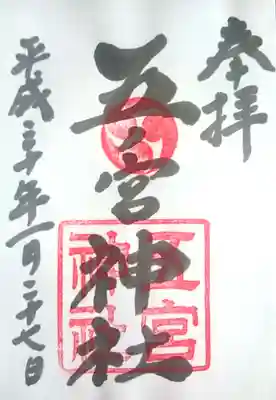 奉拝
五宮神社
五宮
神社
平成三十年一月二十七日